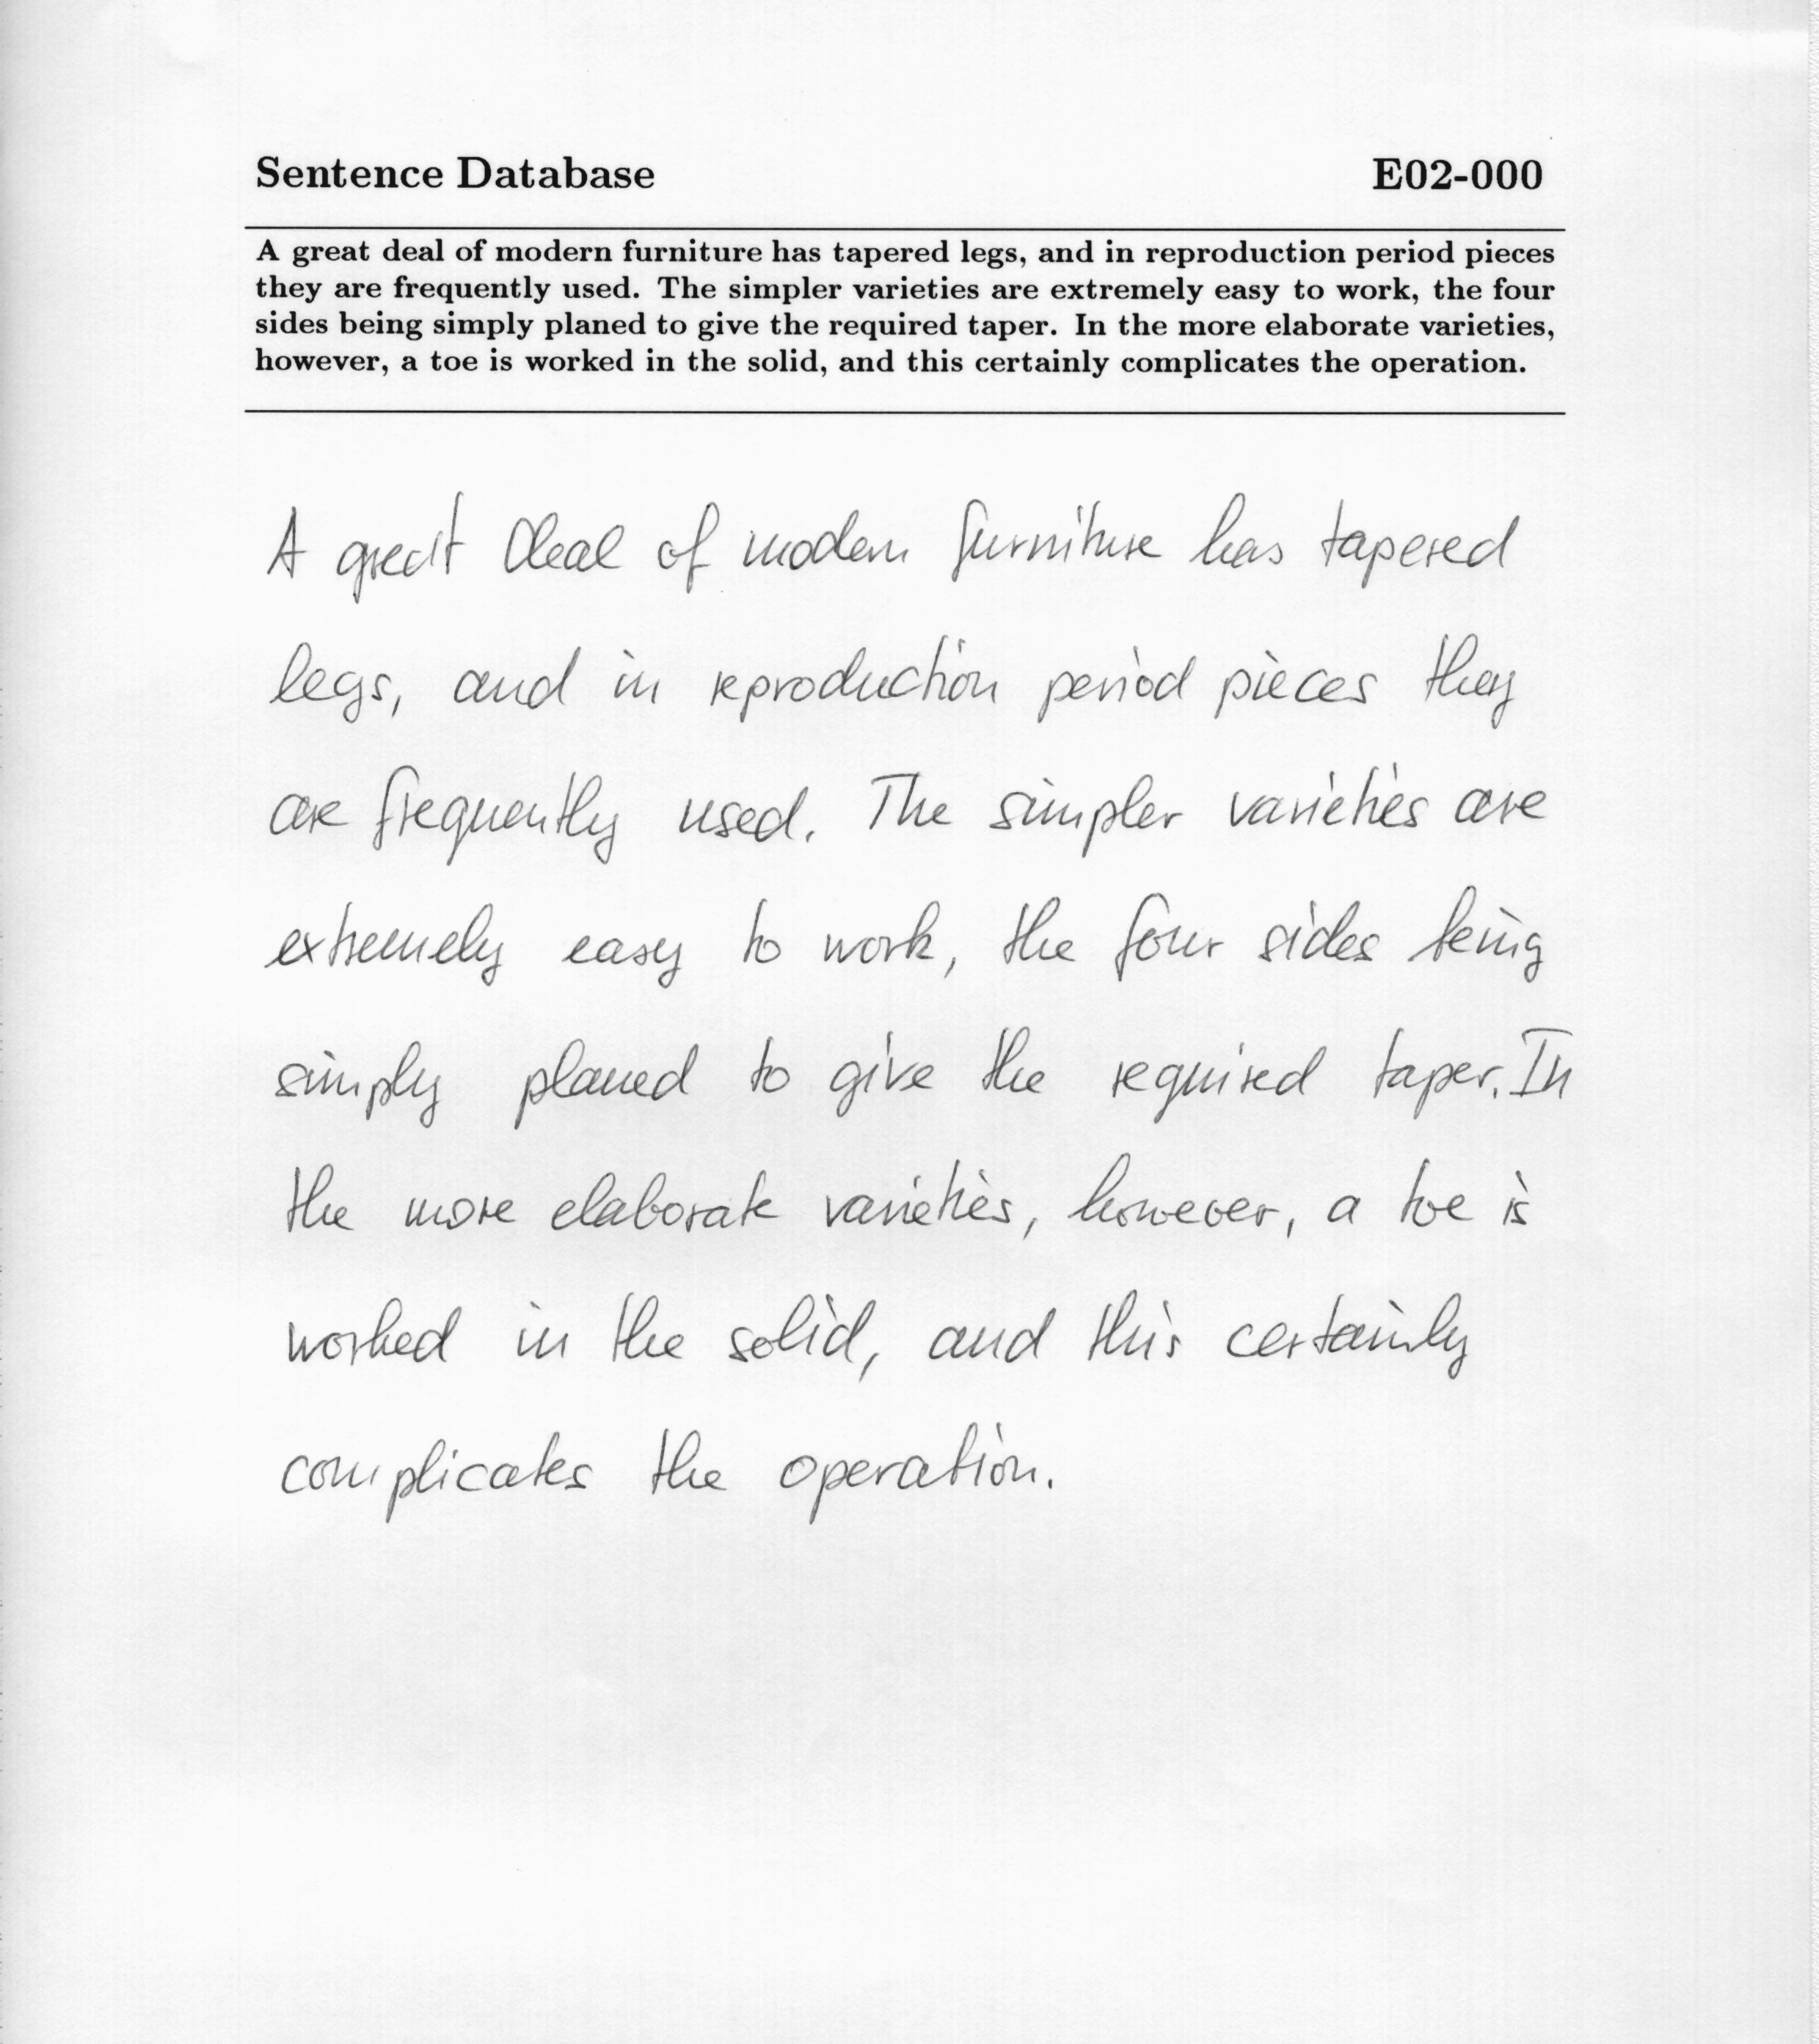 Sentence Database E02-000
A great deal of modern furniture has tapered legs, and in reproduction period pieces
they are frequently used. The simpler varieties are extremely easy to work, the four
sides being simply planed to give the required taper. In the more elaborate varieties,
however, a toe is worked in the solid, and this certainly complicates the operation.
A great deal of modern furniture has tapered
legs, and in reproduction period pieces they
are frequently used. The simpler varieties are
extremely easy to work, the four sides being
simply planed to give the required taper. In
the more elaborate varieties, however, a toe is
worked in the solid, and this certainly
complicates the operation.